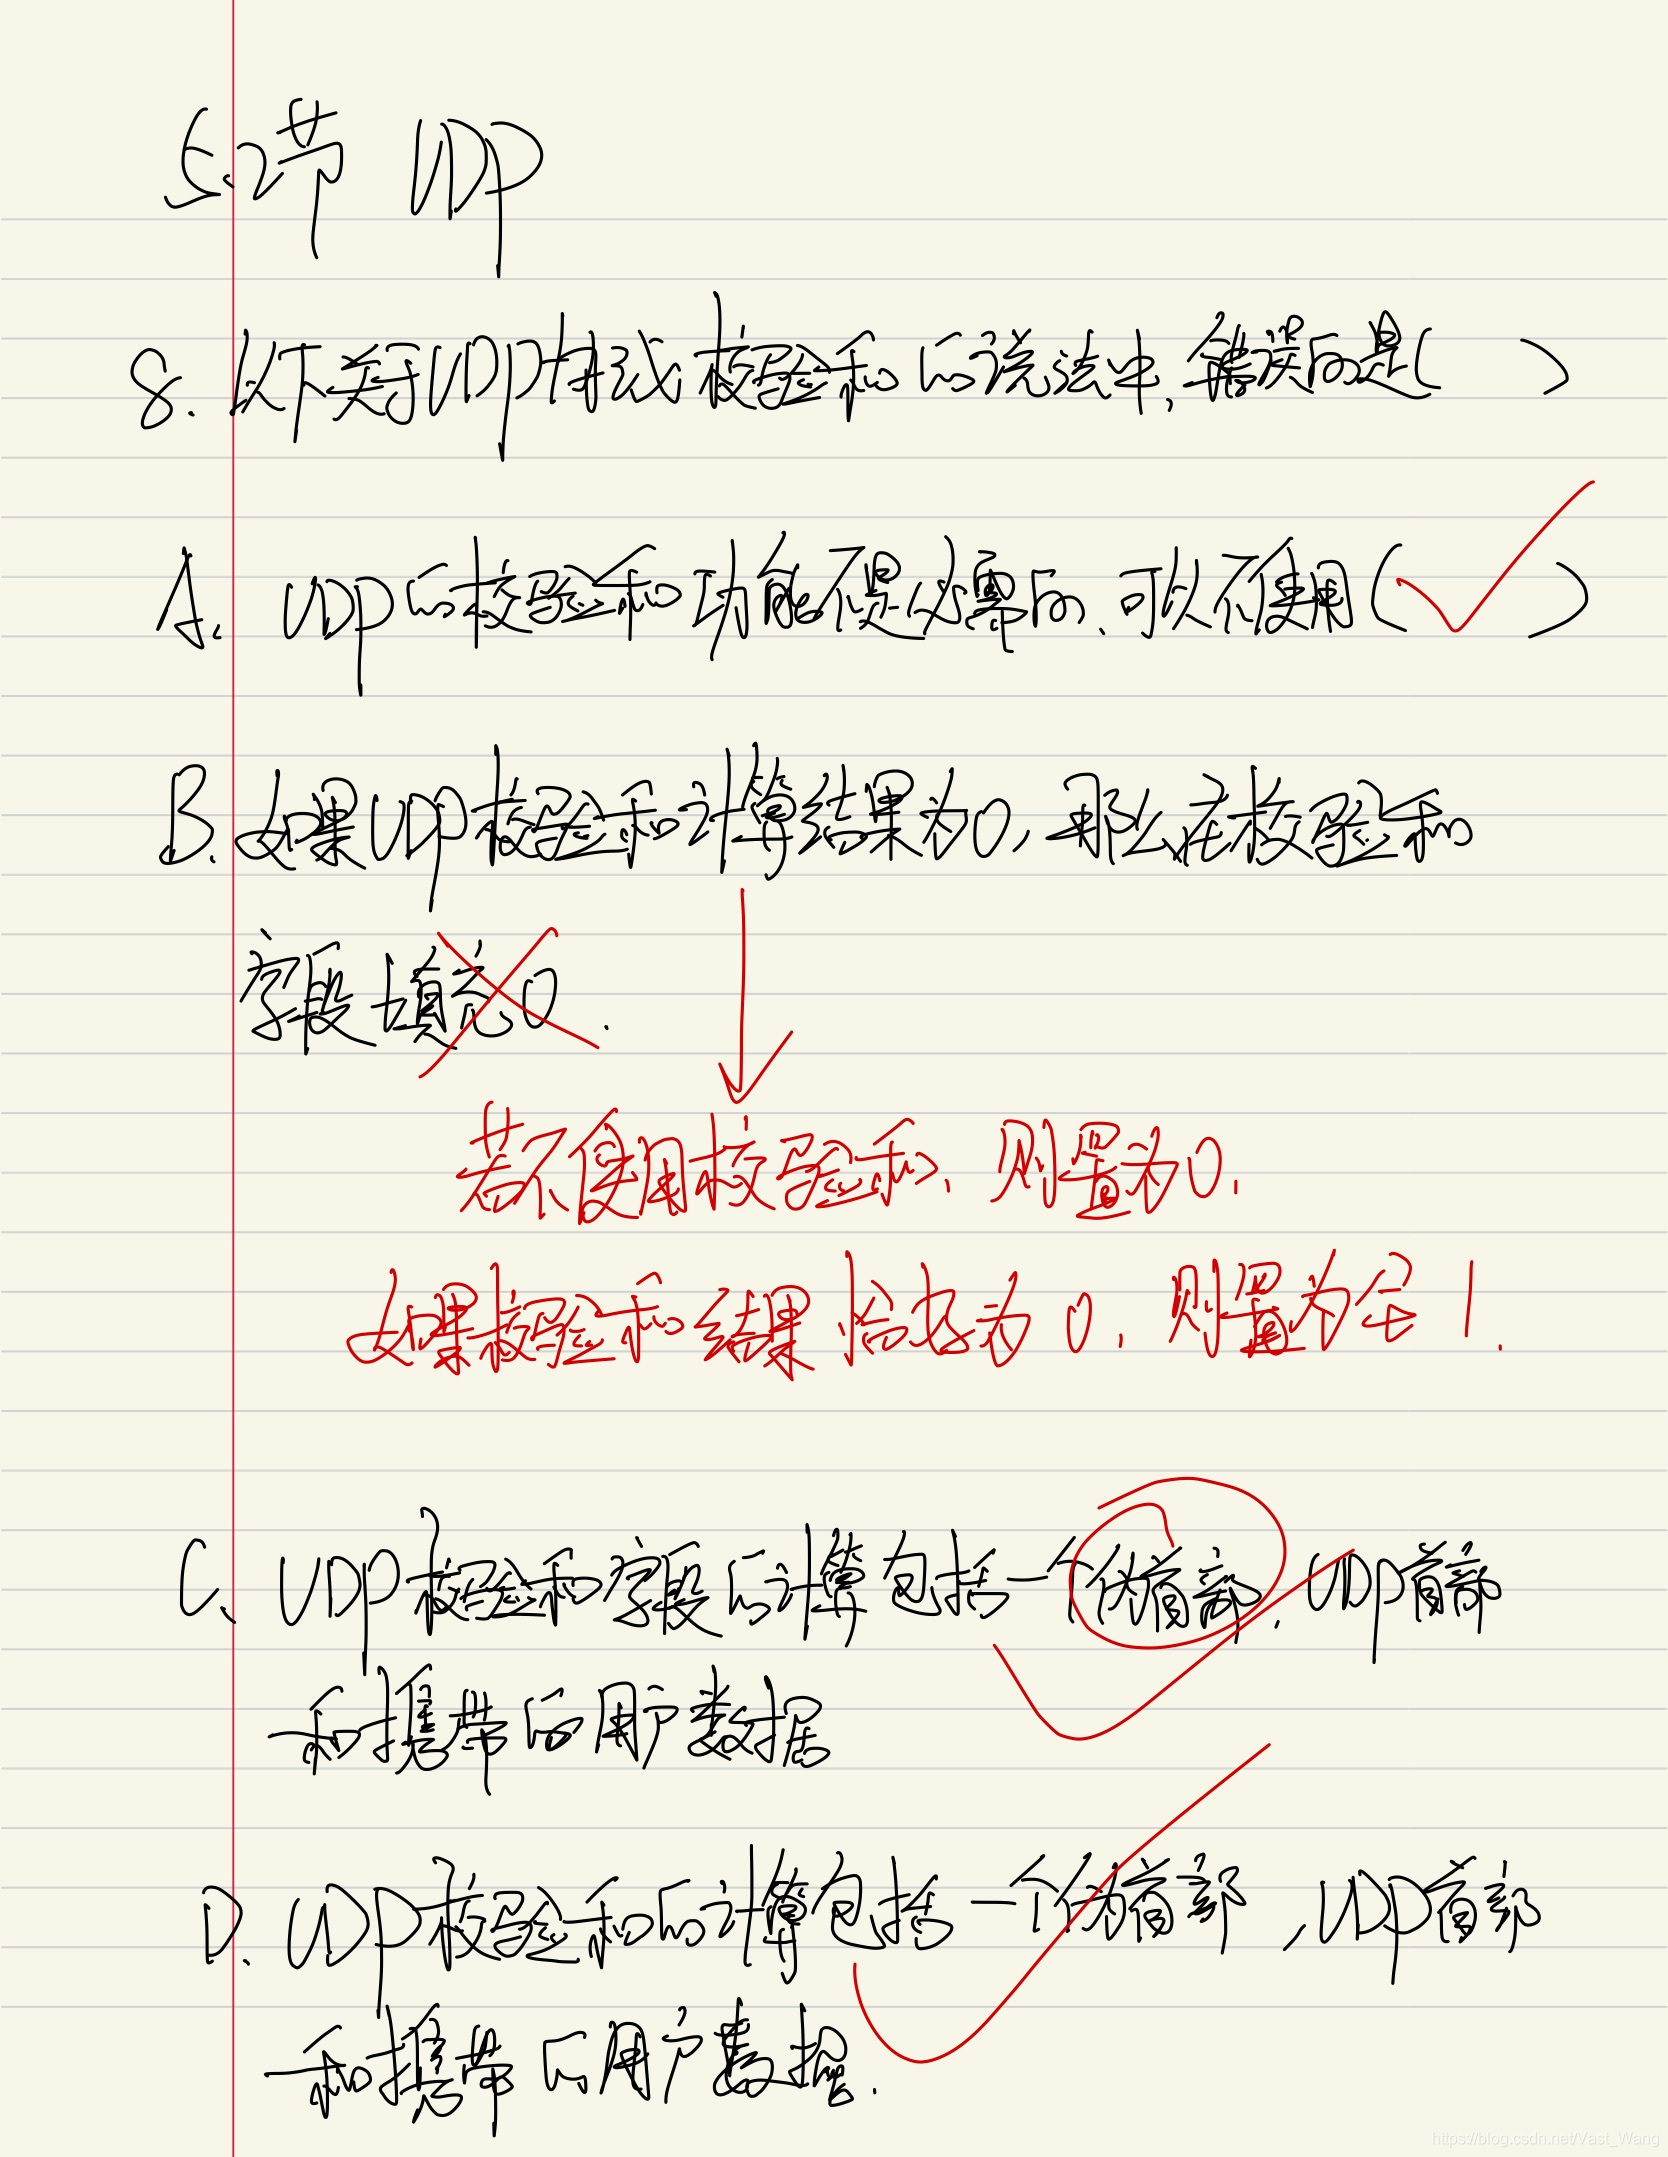 5.2节 UDP
8. 以下关于UDP协议校验和的说法中,错误的是( )
A. UDP的校验和功能不是必需的、可以不使用( )
B. 如果UDP校验和计算结果为0,那么在校验和
字段填充0.
若不使用校验和、则置为0.
如果校验和结果恰好为0,则置为全1.
C. UDP校验和字段的计算包括一个伪首部、UDP首部
和携带的用户数据
D. UDP校验和的计算包括一个伪首部,UDP首部
和携带的用户数据.
https://blog.csdn.net/Vast_Wang